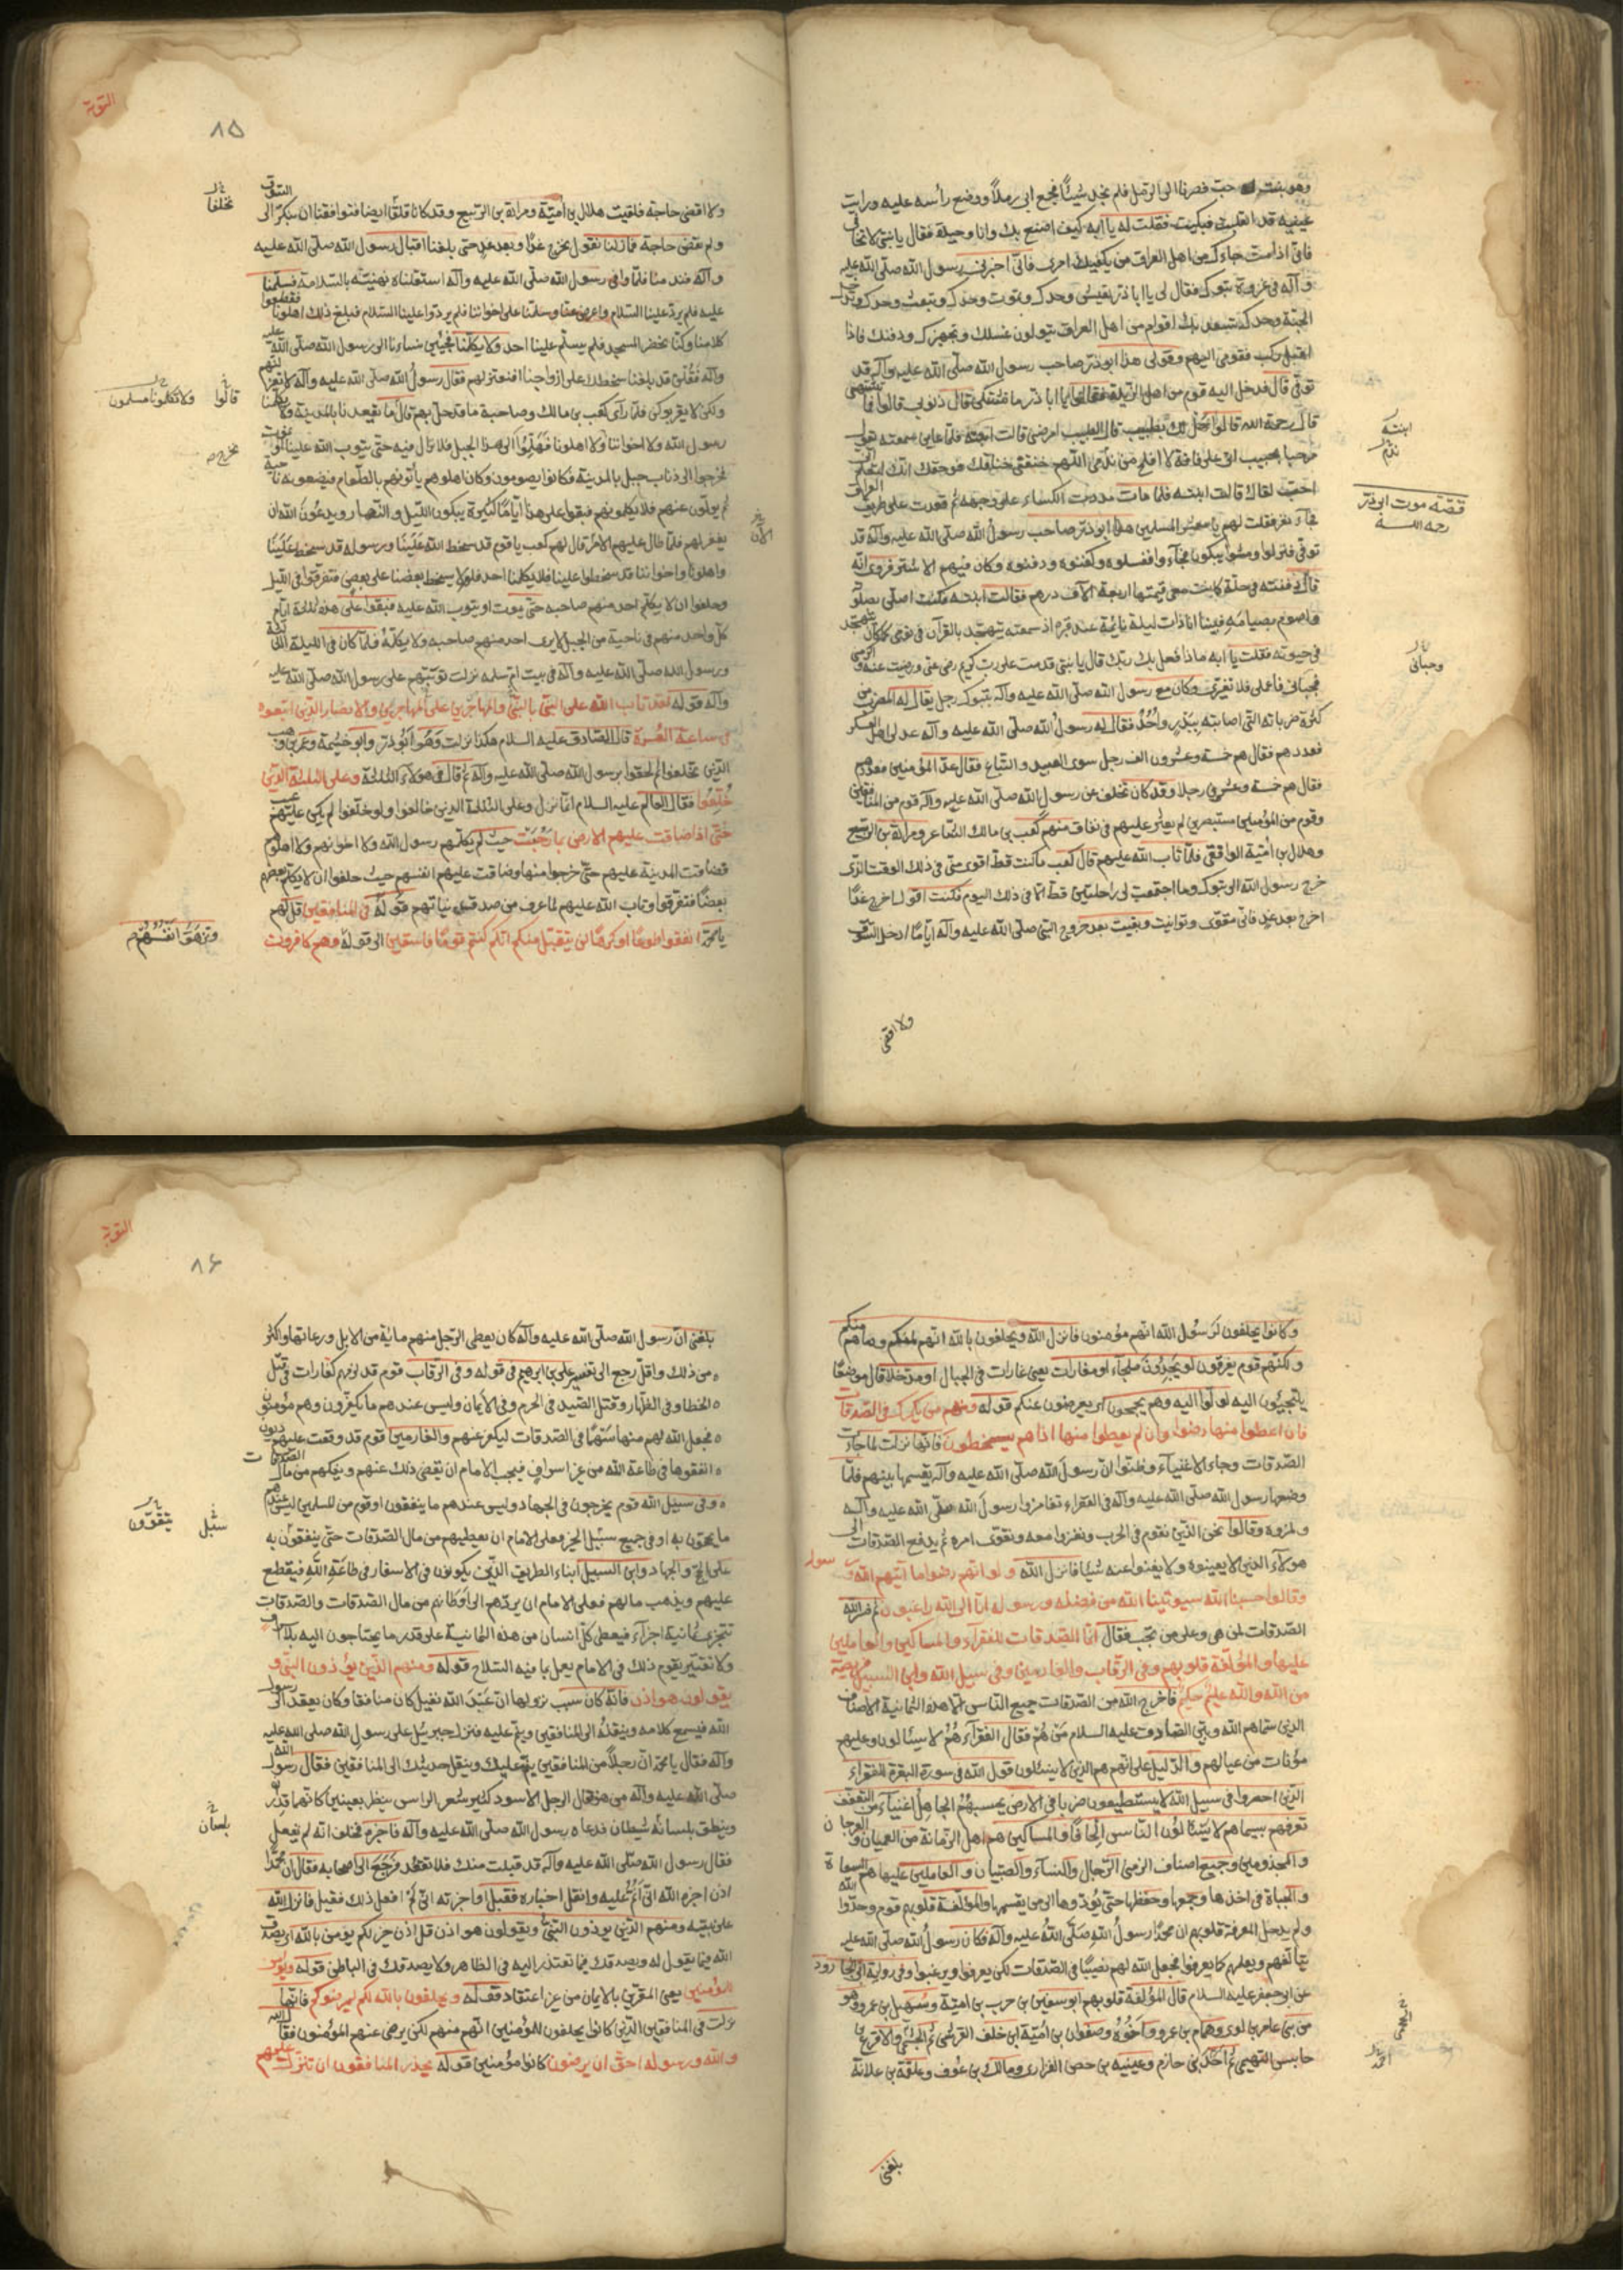 وهو بنت له حب فصرنا الى الرمل فلم نجد شيئا فجمع ابى رملا ووضع رأسه عليه ورايت
عينيه قد انقلبت فبكيت فقلت له يا ابه كيف اصنع بك وانا وحيدة فقال يا بنتى لا تخافى
فانى اذا مت جاءك من اهل العراق من يكفيك امرى فانى اخبرنى رسول الله صلى الله عليه
وآله فى غزوة تبوك فقال لى يا ابا ذر تعيش وحدك وتموت وحدك وتبعث وحدك وتدخل
الجنة وحدك تسعد بك اقوام من اهل العراق يتولون غسلك وتجهيزك ودفنك فاذا
اقبل ركب فقومى اليهم وقولى هذا ابو ذر صاحب رسول الله صلى الله عليه وآله قد
توفى قال فدخل اليه قوم من اهل الربذة فقالوا يا ابا ذر ما تشتكى قال ذنوبى قالوا فما تشتهى
قال رحمة الله قالوا هل لك بطبيب قال الطبيب امرضنى قالت ابنته فلما عاين سمعته يقول
مرحبا بحبيب اتى على فاقة لا افلح من ندم اللهم خنقنى خناقك فوحقك انك لتعلم انى
احب لقاك قالت ابنته فلما مات مددت الكساء على وجهه ثم قعدت على طريق العراق
فجاء نفر فقلت لهم يا معشر المسلمين هذا ابو ذر صاحب رسول الله صلى الله عليه وآله قد
توفى فنزلوا ومشوا يبكون فجاءوا فغسلوه وكفنوه ودفنوه وكان فيهم الاشتر فروى انه
قال دفنته فى حلة كانت معى قيمتها اربعة آلاف درهم فقالت ابنته فكنت اصلى بصلوته
واصوم بصيامه فبينا انا ذات ليلة نائمة عند قبره اذ سمعته يتهجد بالقرآن فى نومى كما كان يتهجد
فى حيوته فقلت يا ابه ماذا فعل بك ربك قال يا بنتى قدمت على رب كريم رضى عنى ورضيت عنه واكرمنى
فحبانى فاعملى فلا تغترى وكان مع رسول الله صلى الله عليه وآله بتبوك رجل يقال له المضرب من
كثرة ضرباته التى اصابته ببدر واحد فقال له رسول الله صلى الله عليه وآله عد لى اهل العسكر
فعددهم فقال هم خمسة وعشرون الف رجل سوى العبيد والتباع فقال عد المؤمنين فعددهم
فقال هم خمسة وعشرين رجلا وقد كان تخلف عن رسول الله صلى الله عليه وآله قوم من المنافقين
وقوم من المؤمنين مستبصرين لم يعثر عليهم فى نفاق منهم كعب بن مالك الشاعر ومرارة بن الربيع
وهلال بن امية الواقفى فلما تاب الله عليهم قال كعب ما كنت قط اقوى منى فى ذلك الوقت الذى
خرج رسول الله الى تبوك وما اجتمعت لى راحلتين قط الا فى ذلك اليوم فكنت اقول اخرج غدا
اخرج بعد غد فانى مقوى وتوانيت وبقيت بعد خروج النبى صلى الله عليه وآله اياما ادخل السوق
ولا اقضى
ابنته
ندم
قصة موت ابى ذر
رحمه الله
وحبانى
التوبة
٨٥
ولا اقضى حاجة فلقيت هلال بن امية ومرارة بن الربيع وقد كانا قلقا ايضا فتوافقنا ان نبكر الى السوق
ولم نقض حاجة فما زلنا نقول نخرج غدا وبعد غد حتى بلغنا اقبال رسول الله صلى الله عليه
وآله فندمنا فلما وافى رسول الله صلى الله عليه وآله استقبلناه نهنيته بالسلامة فسلمنا
عليه فلم يرد علينا السلام واعرض عنا وسلمنا على اخواننا فلم يردوا علينا السلام فبلغ ذلك اهلونا فقطعوا
كلامنا وكنا نحضر المسجد فلم يسلم علينا احد ولا يكلمنا فجئن نساءنا الى رسول الله صلى الله عليه
وآله فقلن قد بلغنا سخطك على ازواجنا افنعتزلهم فقال رسول الله صلى الله عليه وآله لا تعتزلنهم
ولكن لا يقربوكن فلما رآى كعب بن مالك وصاحبه ما قد حل بهم قال ما يقعدنا بالمدينة ولا يكلمنا
رسول الله ولا اخواننا ولا اهلونا فهلموا الى هذا الجبل فلا نزال فيه حتى يتوب الله علينا او نموت
فخرجوا الى ذناب جبل بالمدينة فكانوا يصومون وكان اهلوهم يأتونهم بالطعام فيضعونه ناحية
ثم يولون عنهم فلا يكلمونهم فبقوا على هذا اياما كثيرة يبكون الليل والنهار ويدعون الله ان
يغفر لهم فلما طال عليهم الامر قال لهم كعب يا قوم قد سخط الله علينا ورسوله قد سخط علينا
واهلونا واخواننا قد سخطوا علينا فلا يكلمنا احد فلم لا يسخط بعضنا على بعض فتفرقوا فى الليل
وحلفوا ان لا يكلم احد منهم صاحبه حتى يموت او يتوب الله عليه فبقوا على هذه ثلثة ايام
كل واحد منهم فى ناحية من الجبل لا يرى احد منهم صاحبه ولا يكلمه فلما كان فى الليلة الثالثة
ورسول الله صلى الله عليه وآله فى بيت ام سلمه نزلت توبتهم على رسول الله صلى الله عليه
وآله قوله لقد تاب الله على النبى بالنبى والمهاجرين على المهاجرين والانصار الذين اتبعوه
فى ساعة العسرة قال الصادق عليه السلام هكذا نزلت وهو ابو ذر وابو خيثمة وعمير بن وهب
الذين تخلفوا ثم لحقوا برسول الله صلى الله عليه وآله ثم قال فى هؤلاء الثلثة وعلى الثلثة الذين
خلفوا فقال العالم عليه السلام انما نزل وعلى الثلثة الذين خالفوا ولو خلفوا لم يكن عليهم عيب
حتى اذا ضاقت عليهم الارض بما رحبت حيث لم يكلمهم رسول الله ولا اخوانهم ولا اهلوهم
فضاقت المدينة عليهم حتى خرجوا منها وضاقت عليهم انفسهم حيث حلفوا ان لا يكلم بعضهم
بعضا فتفرقوا وتاب الله عليهم لما عرف من صدق نياتهم قوله فى المنافقين قل لهم
يا محمد انفقوا طوعا او كرها لن يتقبل منكم انكم كنتم قوما فاسقين الى قوله وهم كافرون
تخلفا
قالوا ولا تكلمونا مسلمون
الآن
وتزهق انفسهم
وكانوا يحلفون لرسول الله انهم مؤمنون فانزل الله ويحلفون بالله انهم لمنكم وما هم منكم
ولكنهم قوم يفرقون لو يجدون ملجأ او مغارات يعنى غارات فى الجبال او مدخلا قال موضعا
يلتجئون اليه لولوا اليه وهم يجمحون اى يعرضون عنكم قوله ومنهم من يلمزك فى الصدقات
فان اعطوا منها رضوا وان لم يعطوا منها اذا هم يسخطون فانها نزلت لما جاءت
الصدقات وجاء الاغنياء وظنوا ان رسول الله صلى الله عليه وآله يقسمها بينهم فلما
وضعها رسول الله صلى الله عليه وآله فى الفقراء تغامزوا رسول الله صلى الله عليه وآله
ولمزوه وقالوا نحن الذين نقوم فى الحرب ونغزوا معه ونقوى امره ثم يدفع الصدقات الى
هؤلاء الذين لا يعينوه ولا يغنوا عنه شيئا فانزل الله ولو انهم رضوا ما اتيهم الله ورسوله
وقالوا حسبنا الله سيؤتينا الله من فضله ورسوله انا الى الله راغبون ثم فسر الله
الصدقات لمن هى وعلى من تجب فقال انما الصدقات للفقراء والمساكين والعاملين
عليها والمؤلفة قلوبهم وفى الرقاب والغارمين وفى سبيل الله وابن السبيل فريضة
من الله والله عليم حكيم فاخرج الله من الصدقات جميع الناس الا هذه الثمانية الاصناف
الذين سماهم الله وبين الصادق عليه السلام من هم فقال الفقراء هم لا يسئالون وعليهم
مؤنات من عيالهم والدليل على انهم هم الذين لا يسئلون قول الله فى سورة البقرة للفقراء
الذين احصروا فى سبيل الله لا يستطيعون ضربا فى الارض يحسبهم الجاهل اغنياء من التعفف
تعرفهم بسيماهم لا يسئلون الناس الحافا والمساكين هم اهل الزمانة من العميان والعرجان
والمجذومين وجميع اصناف الزمنى الرجال والنساء والصبيان والعاملين عليها هم السعاة
والجباة فى اخذها وجمعها وحفظها حتى يؤدوها الى من يقسمها والمؤلفة قلوبهم قوم وحدوا الله
ولم يدخل المعرفة قلوبهم ان محمدا رسول الله صلى الله عليه وآله فكان رسول الله صلى الله عليه
يتالفهم ويعلمهم كما يعرفوا فجعل الله لهم نصيبا فى الصدقات لكى يعرفوا ويرغبوا وفى رواية ابى الجارود
عن ابى جعفر عليه السلام قال المؤلفة قلوبهم ابو سفين بن حرب بن امية وسهيل بن عمرو وهو
من بنى عامر بن لوى وهمام بن عمرو واخوه وصفوان بن امية ابن خلف القرشى ثم الجشمى والاقرع بن
حابس التميمى ثم احد بنى حازم وعيينه بن حصن الفزارى ومالك بن عوف وعلقمة بن علاثة
بلغنى
التوبة
٨۶
بلغنى ان رسول الله صلى الله عليه وآله كان يعطى الرجل منهم مائة من الابل ورعاتها واكثر
من ذلك واقل رجع الى تفسير على بن ابرهيم فى قوله وفى الرقاب قوم قد لزمهم كفارات فى قتل
الخطا وفى الظهار وقتل الصيد فى الحرم وفى الايمان وليس عندهم ما يكفرون وهم مؤمنون
فجعل الله لهم منها سهما فى الصدقات ليكفر عنهم والغارمين قوم قد وقعت عليهم ديون
انفقوها فى طاعة الله من غير اسراف فيجب الامام ان يقضى ذلك عنهم ويفكهم من مال الصدقات
وفى سبيل الله قوم يخرجون فى الجهاد وليس عندهم ما ينفقون او قوم من المسلمين ليس عندهم
ما يحجون به او فى جميع سبل الخير فعلى الامام ان يعطيهم من مال الصدقات حتى ينفقون به
على الحج والجهاد وابن السبيل ابناء الطريق الذين يكونون فى الاسفار فى طاعة الله فيقطع
عليهم ويذهب مالهم فعلى الامام ان يردهم الى اوطانهم من مال الصدقات والصدقات
تتجزى ثمانية اجزاء فيعطى كل انسان من هذه الثمانية على قدر ما يحتاجون اليه بلا اسراف
ولا تقتير يقوم ذلك فى الامام يعمل بما فيه الصلاح قوله ومنهم الذين يؤذون النبى و
يقولون هو اذن فانه كان سبب نزولها ان عبد الله نفيل كان منافقا وكان يقعد الى رسول
الله فيسمع كلامه وينقله الى المنافقين وينم عليه فنزل جبرئيل على رسول الله صلى الله عليه
وآله فقال يا محمد ان رجلا من المنافقين ينم عليك وينقل حديثك الى المنافقين فقال رسول الله
صلى الله عليه وآله من هو فقال الرجل الاسود كثير شعر الراس ينظر بعينين كانهما قدر
وينطق بلسانه شيطان فدعاه رسول الله صلى الله عليه وآله فاخبره فحلف انه لم يفعل
فقال رسول الله صلى الله عليه وآله قد قبلت منك فلا تقعد فرجع الى اصحابه فقال ان محمدا
اذن اخبره الله انى انم عليه وانقل اخباره فقبل واخبرته انى لم افعل ذلك فقبل فانزل الله
على نبيه ومنهم الذين يوذون النبى ويقولون هو اذن قل اذن خير لكم يؤمن بالله اى يصدق
الله فيما يقول له ويصدقك فيما تعتذر اليه فى الظاهر ولا يصدقك فى الباطن قوله ويؤمن
للمؤمنين يعنى المقرين بالايمان من غير اعتقاد قوله ويحلفون بالله لكم ليرضوكم فانها
نزلت فى المنافقين الذين كانوا يحلفون للمؤمنين انهم منهم لكى يرضى عنهم المؤمنون فقال الله
والله ورسوله احق ان يرضوه ان كانوا مؤمنين قوله يحذر المنافقون ان تنزل عليهم
سبل يتقوون
بلسان